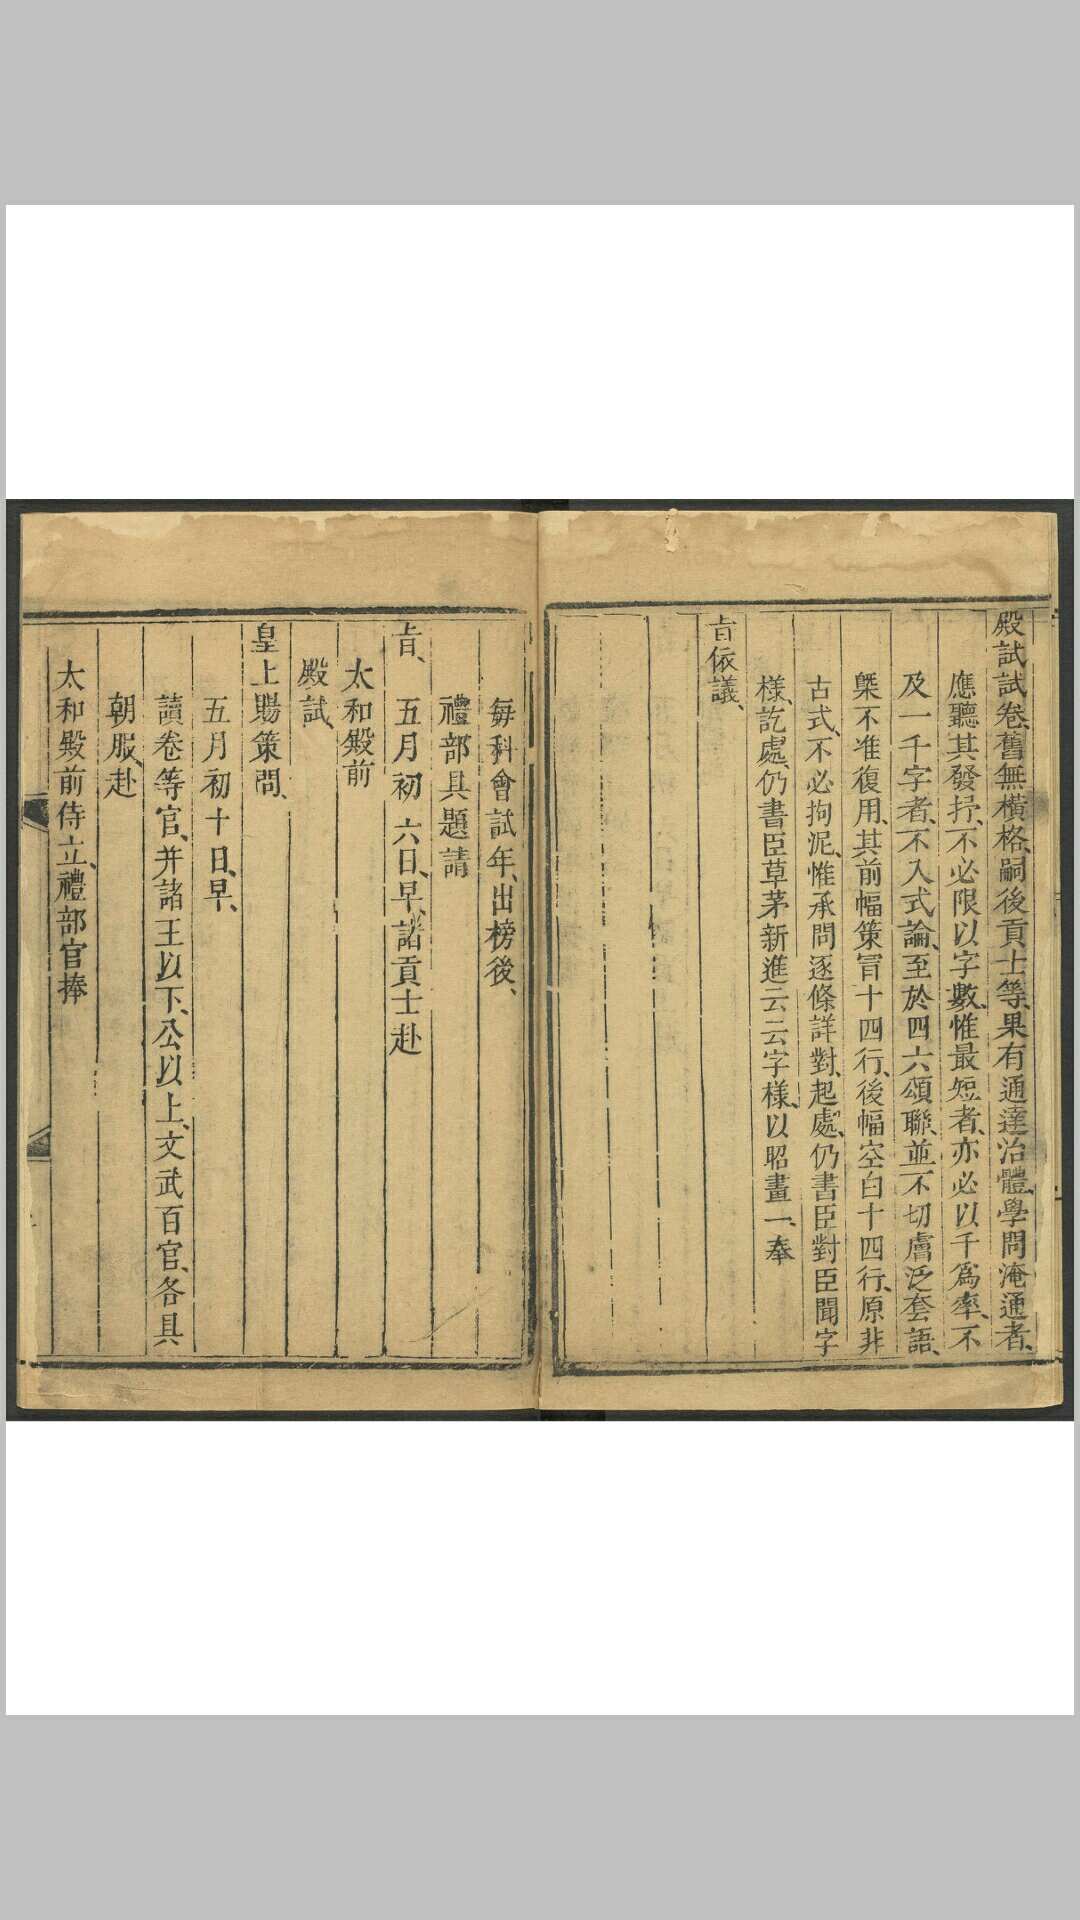 殿試試卷、舊無橫格、嗣後貢士等、果有通達治體、學問淹通者、
應聽其發抒、不必限以字數、惟最短者、亦必以千爲率、不
及一千字者、不入式論、至於四六頌聯、並不切膚泛套語、
槩不准復用、其前幅策冐十四行、後幅空白十四行、原非
古式、不必拘泥、惟承問逐條詳對、起處、仍書臣對臣聞字
樣、訖處、仍書臣草茅新進云云字樣、以昭畫一、奉
旨依議、
每科會試年、出榜後、
禮部具題請
旨、五月初六日、早、諸貢士赴
太和殿前
殿試、
皇上賜策問、
五月初十日、早、
讀卷等官、并諸王以下、公以上、文武百官、各具
朝服、赴
太和殿前侍立、禮部官捧